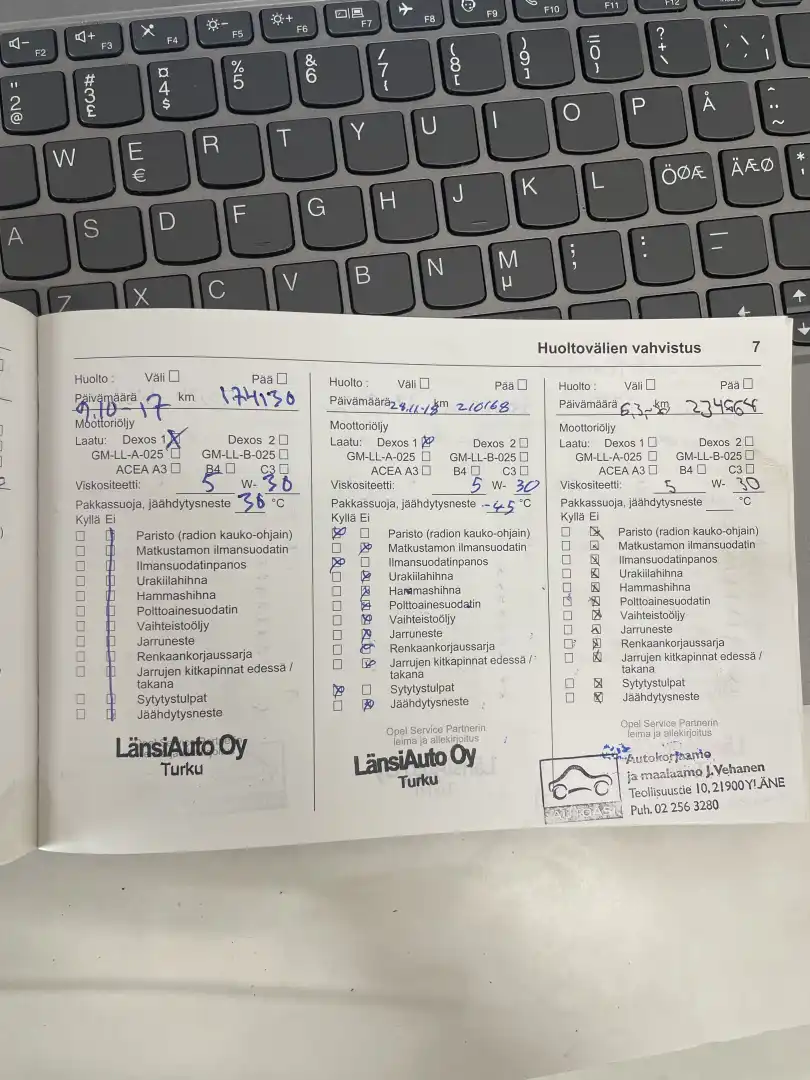 F2 F3 F4 F5 F6 F7 F8 F9 F10 F11 F12
" 2 @ # 3 £ ¤ 4 $ % 5 & 6 / 7 { ( 8 [ ) 9 ] = 0 } ? + \
W E € R T Y U I O P Å ¨ ^ ~
A S D F G H J K L ÖØÆ ÄÆØ * '
Z X C V B N M µ ; , : . _ -
Huoltovälien vahvistus 7
Huolto : Väli ☐ Pää ☐
Päivämäärä 9.10-17 km 174130
Moottoriöljy
Laatu: Dexos 1 ☒ Dexos 2 ☐
GM-LL-A-025 ☐ GM-LL-B-025 ☐
ACEA A3 ☐ B4 ☐ C3 ☐
Viskositeetti: 5 W- 30
Pakkassuoja, jäähdytysneste 36 °C
Kyllä Ei
Paristo (radion kauko-ohjain)
Matkustamon ilmansuodatin
Ilmansuodatinpanos
Urakiilahihna
Hammashihna
Polttoainesuodatin
Vaihteistoöljy
Jarruneste
Renkaankorjaussarja
Jarrujen kitkapinnat edessä /
takana
Sytytystulpat
Jäähdytysneste
LänsiAuto Oy
Turku
Huolto : Väli ☐ Pää ☐
Päivämäärä 28.11-18 km 210168
Moottoriöljy
Laatu: Dexos 1 ☒ Dexos 2 ☐
GM-LL-A-025 ☐ GM-LL-B-025 ☐
ACEA A3 ☐ B4 ☐ C3 ☐
Viskositeetti: 5 W- 30
Pakkassuoja, jäähdytysneste -45 °C
Kyllä Ei
Paristo (radion kauko-ohjain)
Matkustamon ilmansuodatin
Ilmansuodatinpanos
Urakiilahihna
Hammashihna
Polttoainesuodatin
Vaihteistoöljy
Jarruneste
Renkaankorjaussarja
Jarrujen kitkapinnat edessä /
takana
Sytytystulpat
Jäähdytysneste
Opel Service Partnerin
leima ja allekirjoitus
LänsiAuto Oy
Turku
Huolto : Väli ☐ Pää ☐
Päivämäärä 6.3.- km
Moottoriöljy
Laatu: Dexos 1 ☐ Dexos 2 ☐
GM-LL-A-025 ☐ GM-LL-B-025 ☐
ACEA A3 ☐ B4 ☐ C3 ☐
Viskositeetti: 5 W- 30
Pakkassuoja, jäähdytysneste °C
Kyllä Ei
Paristo (radion kauko-ohjain)
Matkustamon ilmansuodatin
Ilmansuodatinpanos
Urakiilahihna
Hammashihna
Polttoainesuodatin
Vaihteistoöljy
Jarruneste
Renkaankorjaussarja
Jarrujen kitkapinnat edessä /
takana
Sytytystulpat
Jäähdytysneste
Opel Service Partnerin
leima ja allekirjoitus
Autokorjaamo
ja maalaamo J.Vehanen
Teollisuustie 10, 21900 YLÄNE
Puh. 02 256 3280